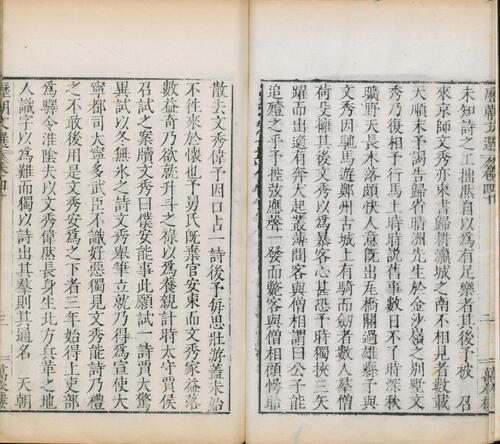 未知詩之工拙然自以為有足樂者其後予被召
來京師文秀亦束書歸耕瀛城之南不相見者數載
天順末予謁告歸省晴洲先生於金沙嶺之別墅文
秀乃復相予行馬上時時説舊事數日不了時深秋
曠野天長木落頗快人意既出瓦橋關過雄縣予與
文秀因馳馬遊鄭州古城上有騎而劒者數人羣僧
荷殳擁其後文秀以為暴客心甚恐予時獨挾三矢
躍而出適有奔犬起叢薄間客與僧相謂曰公子能
追殪之乎予控弦應聲一發而斃客與僧相顧愕眙
散去文秀偉予因口占一詩後予每思壯游蓋未始
不往來於懷也予舅氏既棄官安東而文秀家益落
數益奇乃欲就升斗之祿以為養親計時太守賈侯
召試之案牘文秀曰僕安能事此願試一詩賈大驚
異試以冬無氷之詩文秀舉筆立就乃得為宣使大
寧都司大寧多武臣不識好惡獨見文秀能詩乃禮
之不敢後用是文秀安為之下者三年始得上吏部
為驛令淮陰夫以文秀偉然長身生北方兵革之地
人識字以為難而獨以詩出其羣則其通名　天朝
三